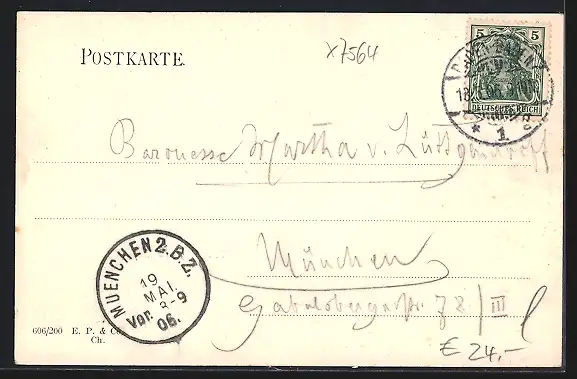 POSTKARTE.
x7564
5 5
DEUTSCHES REICH
* 1
Baronesse Martha v. Lüttgendorff
München
Gabelsbergerstr. 78/III
MUENCHEN 2. B.Z.
19
MAI.
Vor. 8-9
06.
606/200 E. P. & Co.
Ch.
€ 24,-